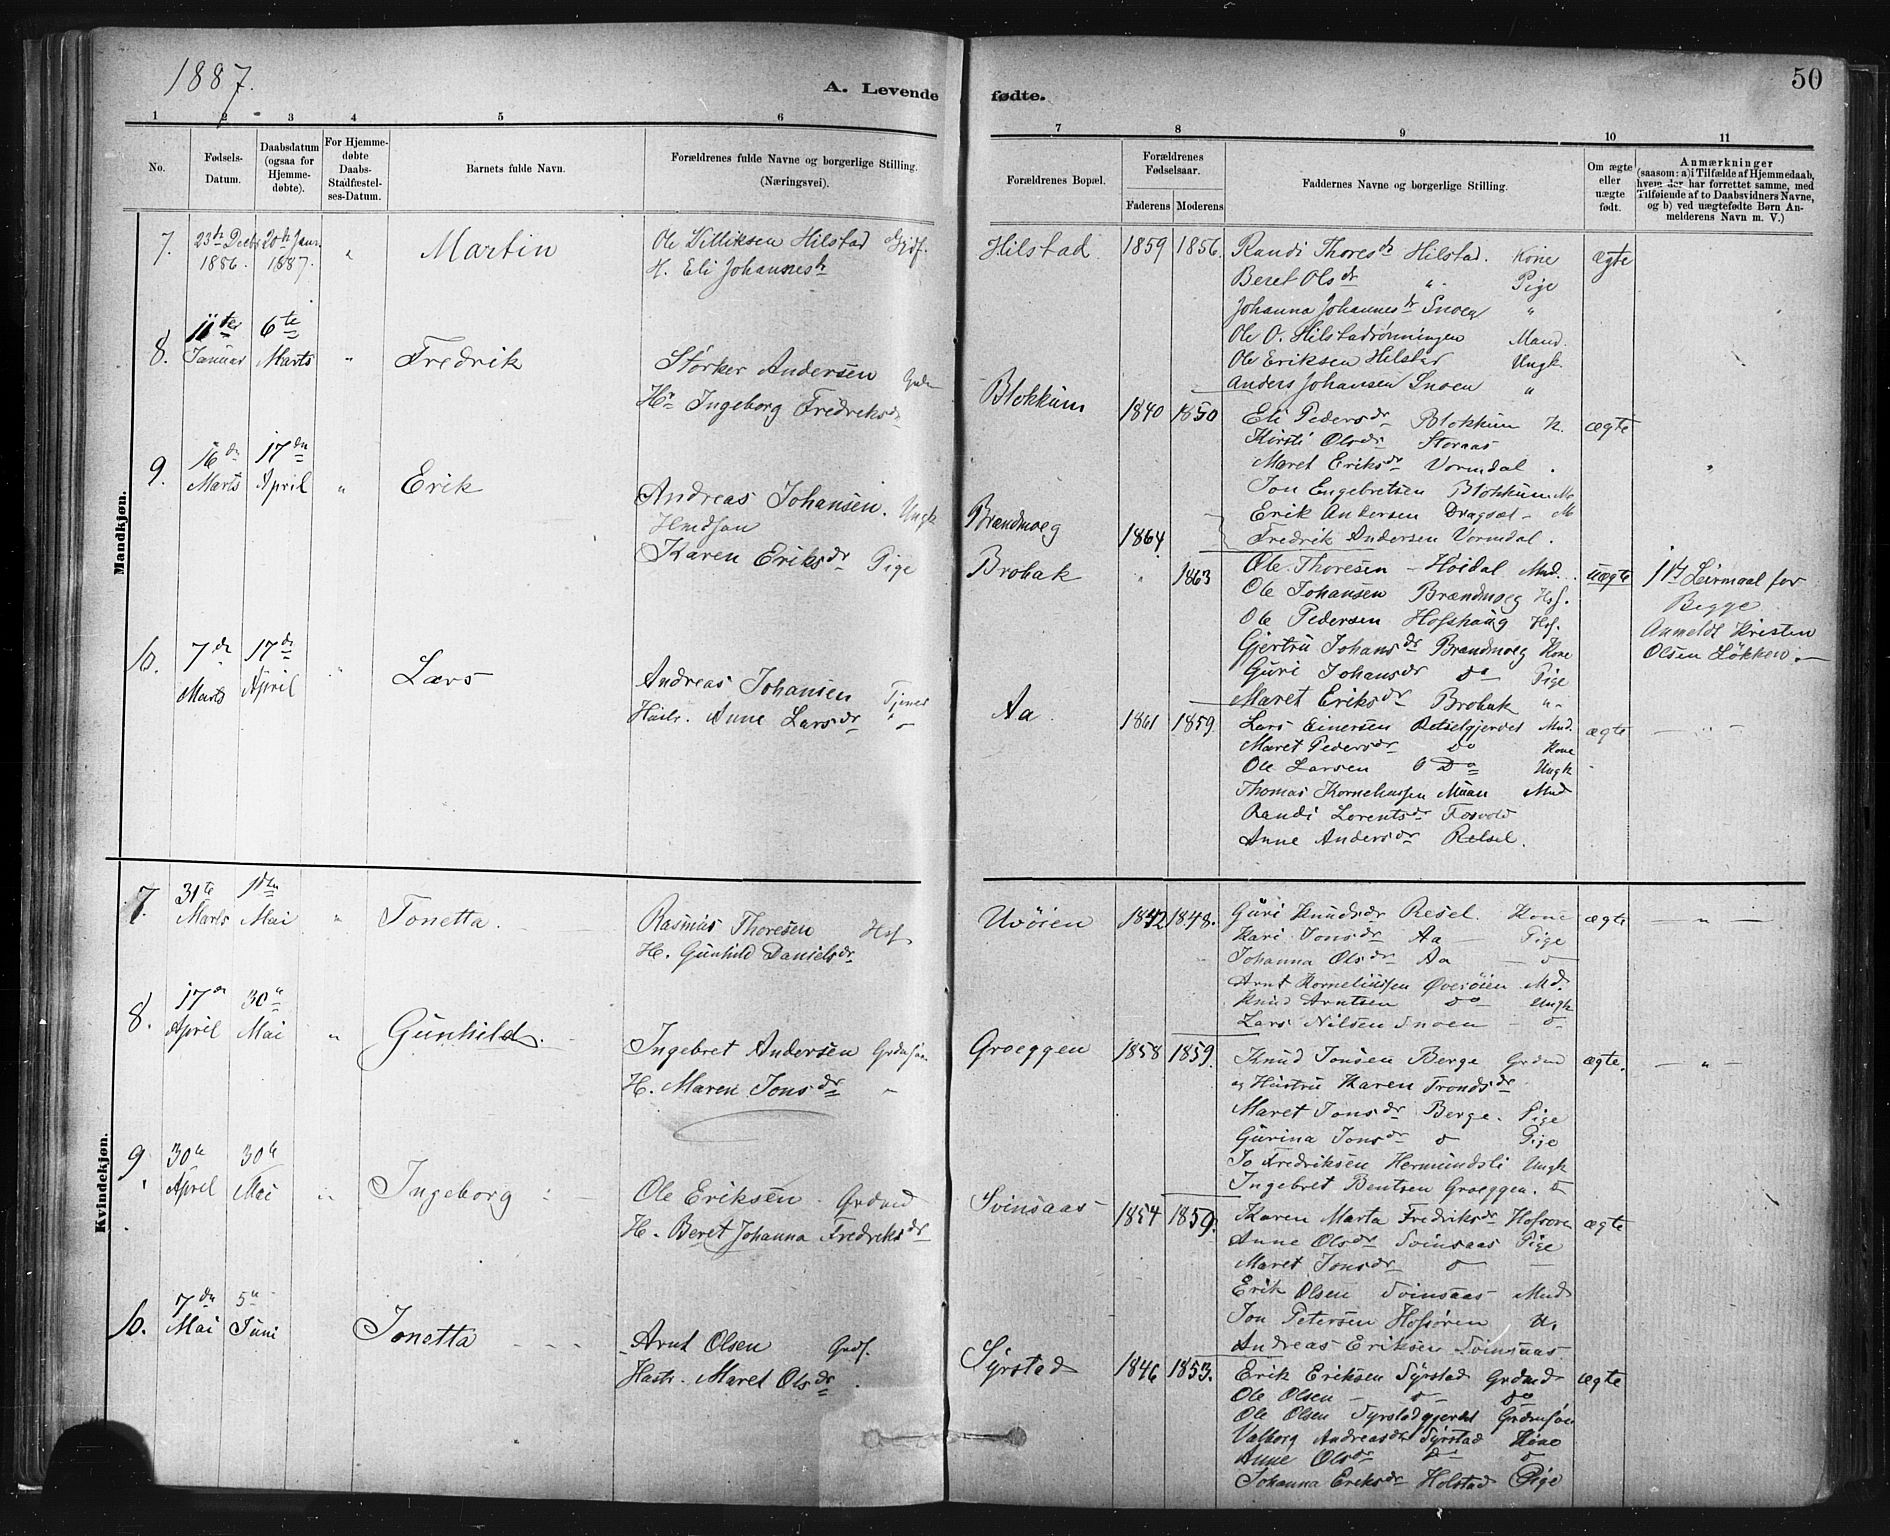 1887.
A. Levende fødte.
50
1 2 3 4 5 6 7 8 9 10 11
No.
Fødsels-Datum.
Daabsdatum (ogsaa for Hjemme-døbte).
For Hjemme-døbte Daabs-Stadfæstel-ses-Datum.
Barnets fulde Navn.
Forældrenes fulde Navne og borgerlige Stilling. (Næringsvei).
Forældrenes Bopæl.
Forældrenes Fødselsaar.
Faderens Moderens
Faddernes Navne og borgerlige Stilling.
Om ægte eller uægte født.
Anmærkninger
(saasom: a) i Tilfælde af Hjemmedaab,
hvem der har forrettet samme, med
Tilføiende af to Daabsvidners Navne,
og b) ved uægtefødte Børn An-
melderens Navn m. V.)
Mandkjøn.
7. 23de Decbr 1886. 20de Janr 1887. " Martin
Ole Hilstad
H. Eli Johannesdr
Hilstad 1859 1856. ægte
Randi Thoresdr Hilstad. Kone
Beret Olsdr " Pige
Johanna Johannesdr Snoen "
Ole O. Hilstadrønningen Mand.
Ole Eriksen Hilstad Ungk.
Anders Johansen Snoen "
8. 11te Januar 6te Marts " Fredrik
Størker Andersen
Hu Ingeborg Fredriksdr
Blokkum 1840 1850 ægte
Eli Pedersdr Blokkum K.
Kirsti Olsdr Storaas
Maret Eriksdr Vormdal .
Jon Engebretsen Blokkum M
Erik Andersen Dragset - M
Fredrik Andersen Vormdal.
9. 16de Marts 17de April " Erik
Andreas Johansen. Ungk
Karen Eriksdr Pige
Brændmoeg 1864
Brobak " 1863 uægte
Ole Thoresen - Hoidal Md.
Ole Johansen Brændmoeg Hsf.
Ole Pedersen Hofshaug Hsf.
Gjertru Johansdr Brændmoeg Kone
Guri Johansdr Do Pige
Maret Eriksdr Brobak "
1ste Leirmaal for
Begge
Anmeldt Kristen
Olsen Løkken.
10. 7de Marts 17de April " Lars
Andreas Johansen Tjener
Hustr. Anne Larsdr "
Aa. 1861 1859 ægte - " -
Lars Einersen Retselgjerdet Md.
Maret Pedersdr Do Kone
Ole Larsen Do Ungk
Thomas Korneliussen Muan Md
Randi Lorentsdr Fosvold
Anne Andersdr Retsel.
Kvindekjøn.
7. 31te Marts Mai " Tonetta
Rasmus Thoresen Hsf
H. Gunhild Danielsdr
Uvøien 1842 1848. ægte - " -
Guri Knudsdr Resel. Kone
Kari Jonsdr Aa - Pige
Johanna Olsdr Aa - o
Arnt Korneliussen Øverøien Md.
Knud Arntsen Do Ungk
Lars Nilsen Snoen - o
8. 17de April 30te Mai " Gunhild.
Ingebret Andersen
H. Maren Jonsdr "
Groeggen 1858 1859. ægte. - " -
Knud Jonsen Berge Grdmd
og Hustru Karen Trondsdr
Maret Jonsdr Berge. Pige
Gurina Jonsdr o Pige
Jo Fredriksen Hermundsli Ungk
Ingebret Bentsen Groeggen. o
9. 30te April 30te Mai " Ingeborg
Ole Eriksen. Grdmd
H. Beret Johanna Fredriksdr
Svinsaas 1854 1859. ægte
Karen Marta Fredriksdr
Anne Olsdr Svinsaas Pige
Maret Jonsdr o -
Erik Olsen Svinsaas Md
Jon Petersen Hofsøren U.
Andreas Eriksen Svinsaas
10. 7de Mai 5te Juni Jonetta
Arnt Olsen Grdf.
Hustr. Maret Olsdr.
Syrstad 1846 1853. ægte
Erik Eriksen Syrstad Grdmd
Ole Olsen - o Do
Ole Olsen Syrstadgjerdet Grdmsøn
Valborg Andreasdr Syrstad Kone
Anne Olsdr Do o
Johanna Eriksdr Holstad Pige